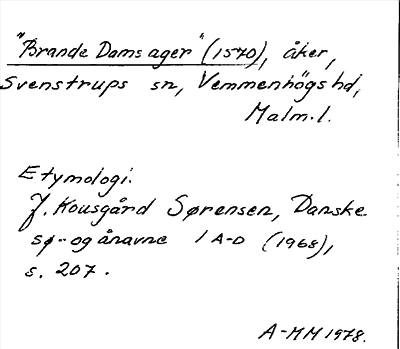 "Brande Dams ager" (1570), åker,
Svenstrups sn, Vemmenhögs hd,
Malm. l.
Etymologi.
J. Kousgård Sørensen, Danske
sø- og ånavne 1 A-D (1968),
s. 207.
A-MM 1978.